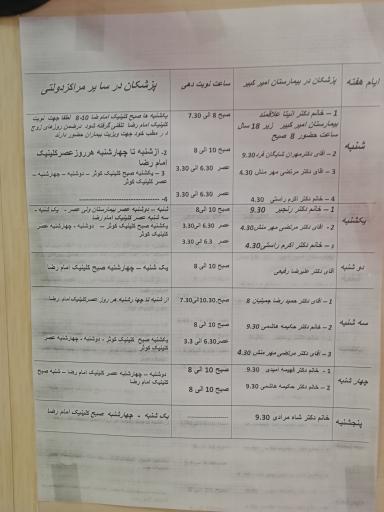 ایام هفته
پزشکان در بیمارستان امیر کبیر
ساعت نوبت دهی
پزشکان در سایر مراکز دولتی
شنبه
1 – خانم دکتر آنیتا علاقمند
بیمارستان امیر کبیر زیر 18 سال
ساعت حضور 8 صبح
2 – آقای دکتر مهران شایگان فرد 9.30
3 – آقای دکتر مرتضی مهر منش 4.30
4 – خانم دکتر اکرم راستی 4.30
صبح 8 الی 7.30
صبح 10 الی 8
عصر 6.30 الی 3.30
عصر 6.30 الی 3.30
یکشنبه ها صبح کلینیک امام رضا 10-8 لطفا جهت نوبت
کلینیک امام رضا تلفنی گرفته شود درضمن روزهای زوج
در مطب خود جهت ویزیت بیماران حضور دارند
2- از شنبه تا چهارشنبه هرروز عصر کلینیک
امام رضا
3 – یکشنبه صبح کلینیک کوثر – دوشنبه – چهارشنبه –
عصر کلینیک کوثر
4- --------------------
یکشنبه
1 – خانم دکتر رنجبر 9.30
2- آقای دکتر مرتضی مهر منش 4.30
خانم دکتر اکرم راستی 4.30
صبح 10 الی 8
عصر 6.30 الی 3.30
عصر 6.30 الی 3.30
شنبه – دوشنبه عصر بیمارستان ولی عصر - یک شنبه -
سه شنبه عصر کلینیک امام رضا
یکشنبه صبح کلینیک کوثر – دوشنبه - چهارشنبه عصر
کلینیک کوثر
دو شنبه
آقای دکتر علیرضا رفیعی
صبح 10 الی 8
یک شنبه – چهارشنبه صبح کلینیک امام رضا
سه شنبه
1 – آقای دکتر حمید رضا جمیلیان 8
2 – خانم دکتر حکیمه هاشمی 9.30
3 – آقای دکتر مرتضی مهر منش 4.30
صبح 10.30 الی 7.30
صبح 10 الی 8
عصر 6.30 الی 3.3
از شنبه تا چهارشنبه هر روز عصر کلینیک امام رضا
یکشنبه صبح کلینیک کوثر - دوشنبه - چهارشنبه عصر
کلینیک کوثر
چهارشنبه
1 - خانم دکتر فهیمه امیدی 9.30
2 – خانم دکتر حکیمه هاشمی 9.30
صبح 10 الی 8
صبح 10 الی 8
دوشنبه – چهارشنبه عصر کلینیک امام رضا – شنبه صبح
کلینیک امام رضا
پنجشنبه
خانم دکتر شاه مرادی 9.30
--------------------
یک شنبه - چهارشنبه صبح کلینیک امام رضا